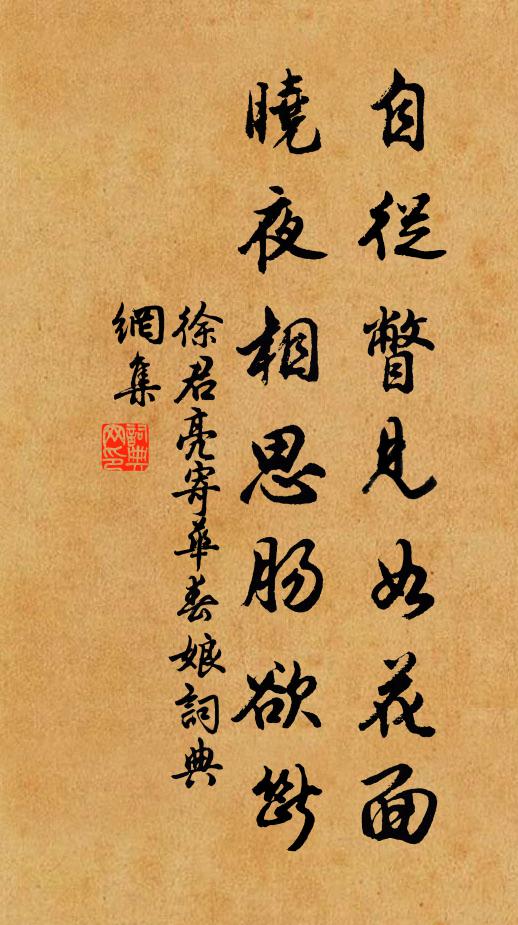 自從瞥見如花面
曉夜相思腸欲斷
徐君亮寄華春娘詞典
網集
詞典網印